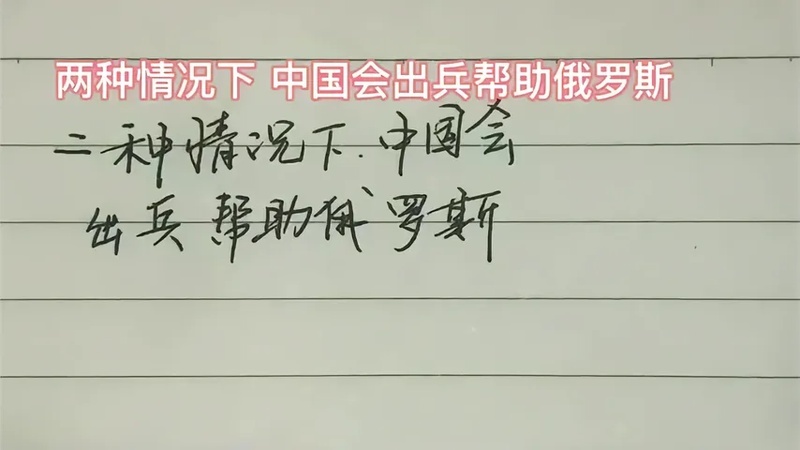 两种情况下 中国会出兵帮助俄罗斯
二种情况下.中国会
出兵帮助俄罗斯